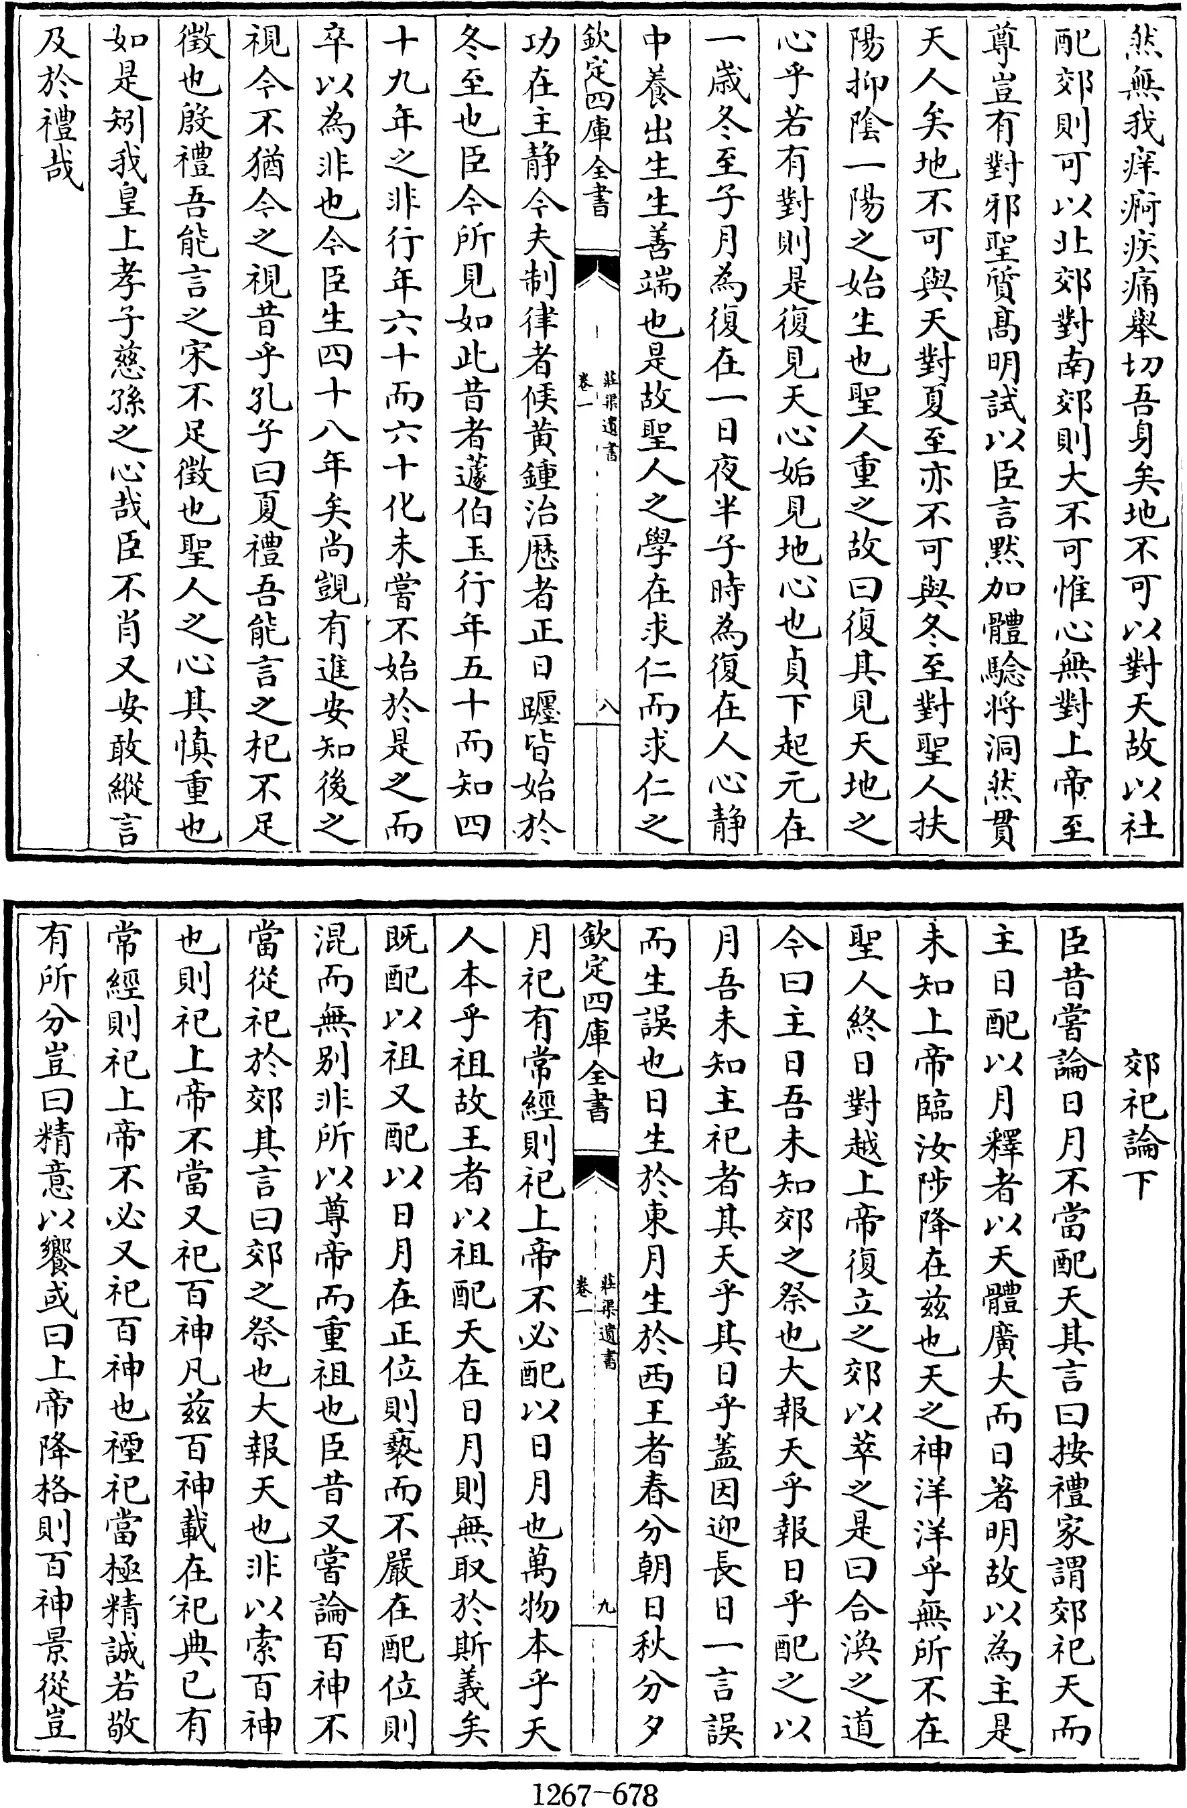 然無我痒疴疾痛舉切吾身矣地不可以對天故以社
配郊則可以北郊對南郊則大不可惟心無對上帝至
尊豈有對邪聖質髙明試以臣言黙加體驗将洞然貫
天人矣地不可與天對夏至亦不可與冬至對聖人扶
陽抑陰一陽之始生也聖人重之故曰復其見天地之
心乎若有對則是復見天心姤見地心也貞下起元在
一歲冬至子月為復在一日夜半子時為復在人心靜
中養出生生善端也是故聖人之學在求仁而求仁之
欽定四庫全書
莊渠遺書
卷一
八
功在主靜今夫制律者候黄鍾治厯者正日躔皆始於
冬至也臣今所見如此昔者蘧伯玉行年五十而知四
十九年之非行年六十而六十化未嘗不始於是之而
卒以為非也今臣生四十八年矣尚覬有進安知後之
視今不猶今之視昔乎孔子曰夏禮吾能言之杞不足
徵也殷禮吾能言之宋不足徵也聖人之心其慎重也
如是矧我皇上孝子慈孫之心哉臣不肖又安敢縱言
及於禮哉
郊祀論下
臣昔嘗論日月不當配天其言曰按禮家謂郊祀天而
主日配以月釋者以天體廣大而日著明故以為主是
未知上帝臨汝陟降在兹也天之神洋洋乎無所不在
聖人終日對越上帝復立之郊以萃之是曰合渙之道
今曰主日吾未知郊之祭也大報天乎報日乎配之以
月吾未知主祀者其天乎其日乎葢因迎長日一言誤
而生誤也日生於東月生於西王者春分朝日秋分夕
欽定四庫全書
莊渠遺書
卷一
九
月祀有常經則祀上帝不必配以日月也萬物本乎天
人本乎祖故王者以祖配天在日月則無取於斯義矣
既配以祖又配以日月在正位則褻而不嚴在配位則
混而無别非所以尊帝而重祖也臣昔又嘗論百神不
當從祀於郊其言曰郊之祭也大報天也非以索百神
也則祀上帝不當又祀百神凡兹百神載在祀典已有
常經則祀上帝不必又祀百神也禋祀當極精誠若敬
有所分豈曰精意以饗或曰上帝降格則百神景從豈
1267-678